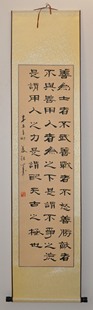 善為士者不武善戰者不怒善勝敵者
不與善用人者為之下是謂不爭之德
是謂用人之力是謂配天古之極也